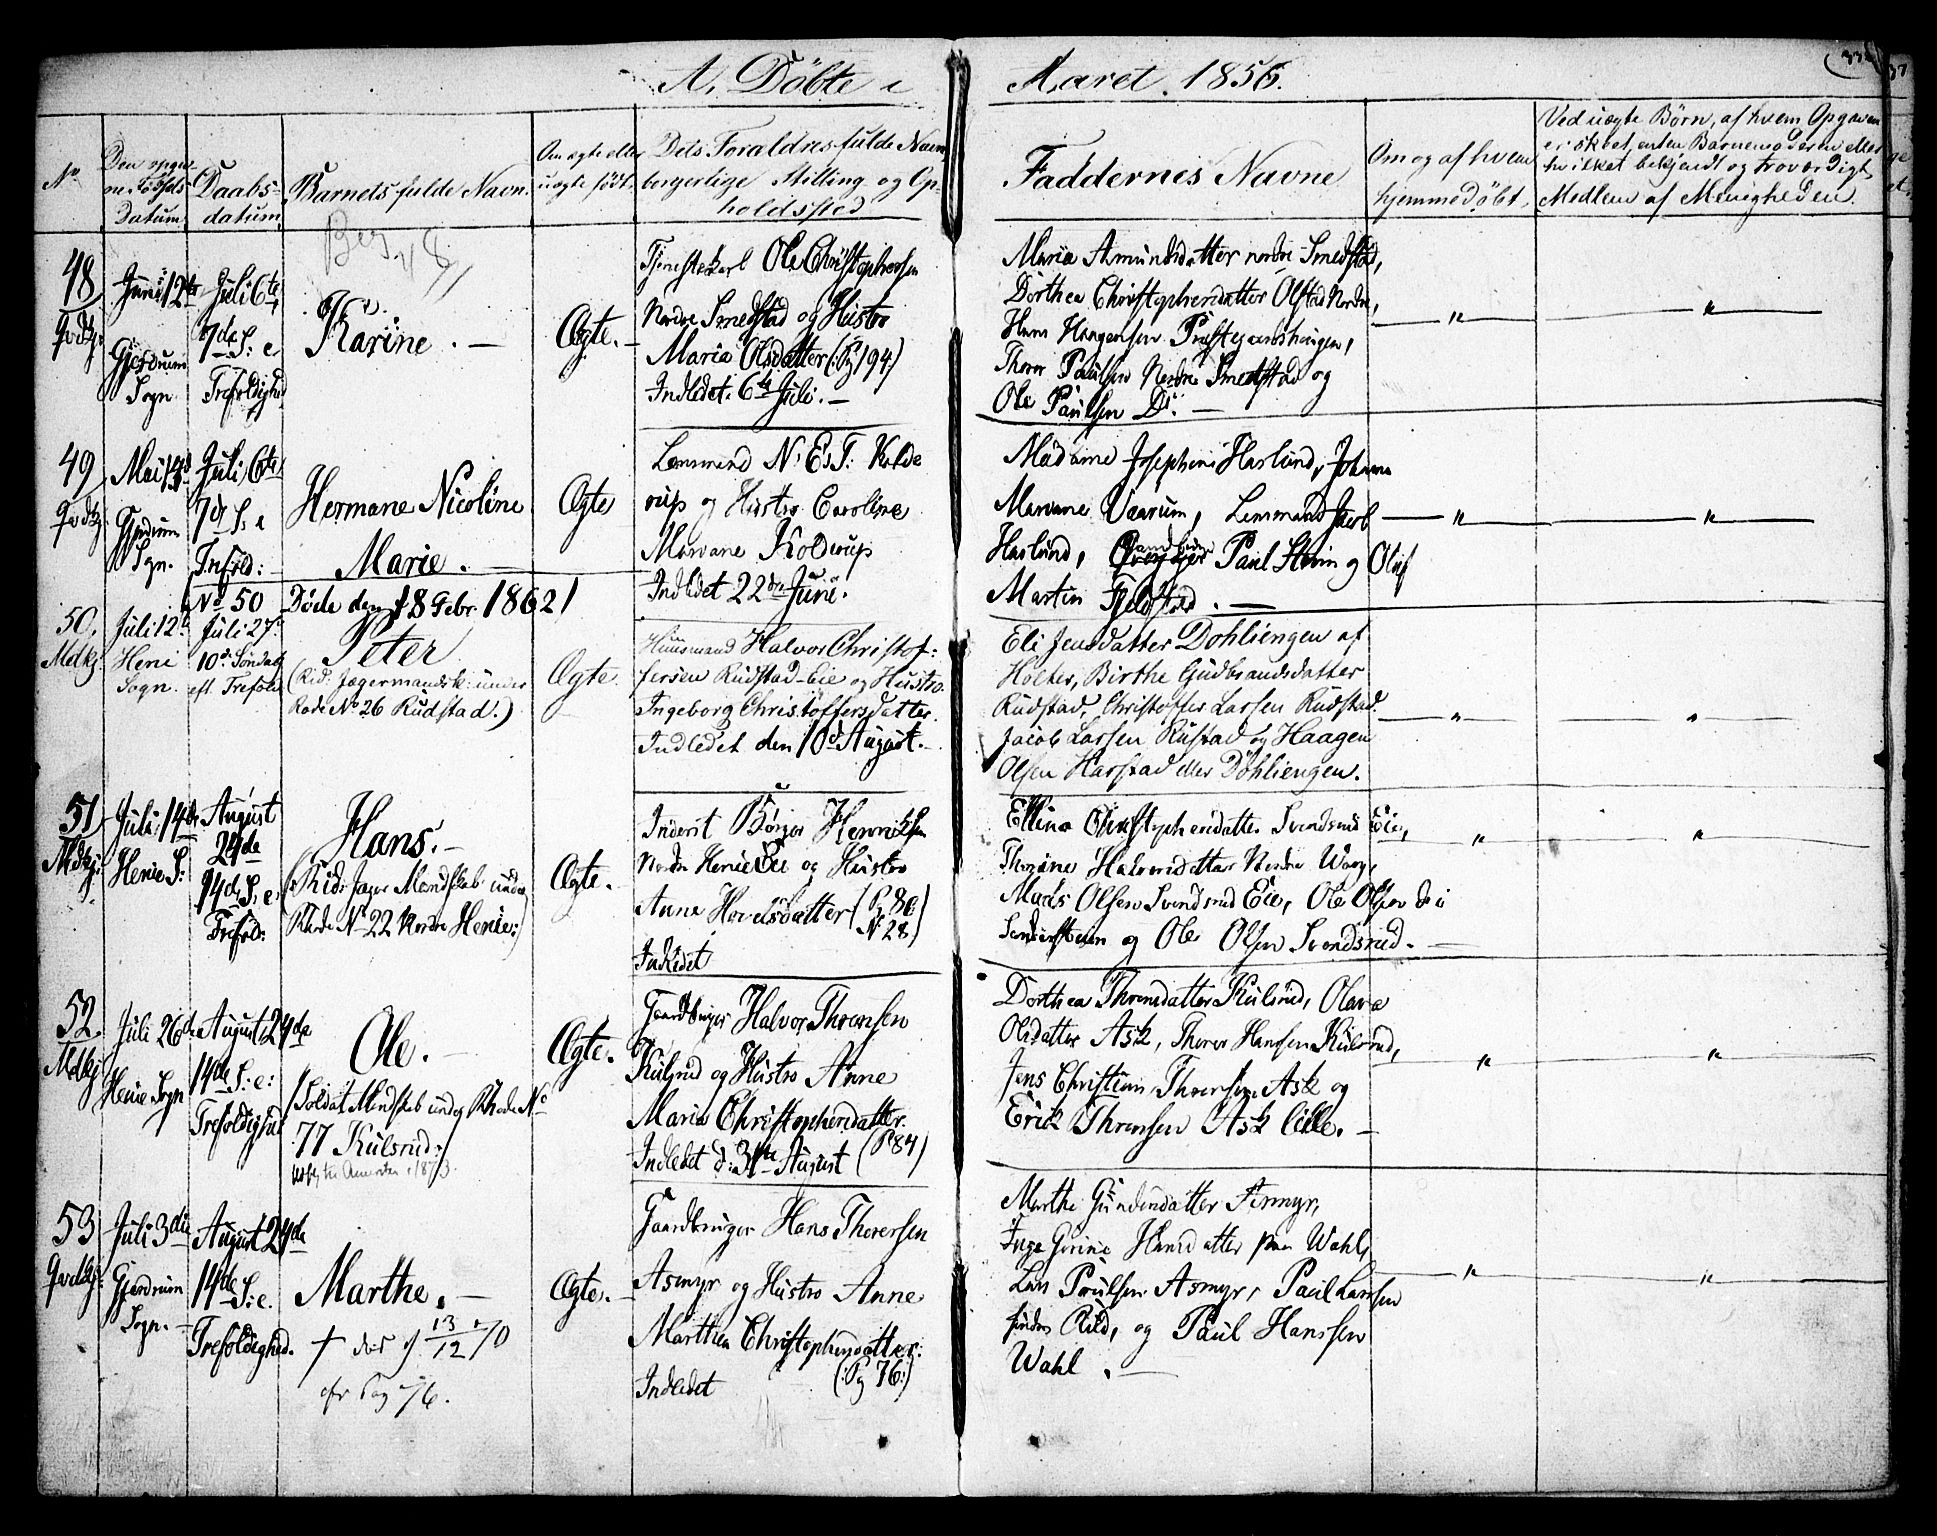 A. Döbte i Aaret 1856.
No
Den opgivne Födsels Datum.
Daabsdatum.
Barnets fulde Navn.
Om ægte eller uægte födt.
Dets Foraldres fulde Navn
borgerlige Stilling og Op-
holdssted
Faddernes Navne
Om og af hvem
hjemmedöbt.
Ved uægte Børn, af hvem Opgaven
er skeet, enten Barnemoderen eller
hvilket bekjendt og troverdigt
Medlem af Menigheden.
48
Gjerdrum
Sogn
Juni 12te
Juli 6te,
7de S: e
Trefoldighed
Karine. —
Ægte. —
Tjenestekarl Ole Christophersen
Nordre Smedstad og Hustro
Maria Olsdatter (: Pg 194)
Indledet. 6te Juli. —
Maria Amundsdatter nordre Smedstad,
Dorthea Christophersdatter Olstad Nordre,
Hans Haagensen
Thorer Paulsen Nordre Smedstad og
Ole Paulsen Do. —
— " —
— " —
49
Mai
Gjerdrum
Sogn.
Juli 6te
7de S. e
Trefold: —
Hermane Nicoline
Marie. —
Ægte
Lensmand N. E. T. Kolde
rup og Hustro Caroline
Marvane Kolderup
Indledet 22de Juni.
Madame Josephine Haslund, Johanne
Marvane Vaarum, Lensmand Jacob
Haslund, Paul Steen og Oluf
Martin Fjeldstad. —
— " —
— " —
No 50 Döde den 18 Febr. 1862
50.
Mdkj:
Juli 12te
Heni
Sogn.
Juli 27de
10de Söndag
eft. Trefold
Peter
(Rid: Jægermandsk: under
Rode No 26 Rudstad.)
Ægte.
Huusmand Halvor Christof-
fersen Rudstad-Eie og Hustro
Ingeborg Christoffersdatter.
Indledet den 10de August. —
Eli Jensdatter Dohliengen af
Holter, Birthe Gudbrandsdatter
Rudstad, Christoffer Larsen Rudstad.
Jacob Larsen Rustad og Haagen
Olsen Harstad eller Döhliengen.
— " —
— " —
51
Mdkj:
Juli 14de
Henie S:
August
24de
14de S. e.
Trefold:
Hans. —
(: Rid: Jæger Mandskab under
Rhode No 22 Nordre Henie:)
Ægte.
Inderst Börger Henriksen
Nordre Henie Eie og Hustro
Anne Hovelsdatter (P. 80
N: 28)
Indledet
Elline Christophersdatter Svendsrud Eie,
Thorine Halvorsdatter Nordre
Mads Olsen Svendsrud Eie, Ole Olsen
og Ole Olsen Svendsrud. —
"
"
52.
Mdkj
Juli 26de
Henie Sogn
August 24de
14de S: e:
Trefoldighed
Ole. —
(Soldat Mandskab under Rhode No
77 Kulsrud:)
Ægte.
Gaardbruger Halvor Thoresen
Kulsrud og Hustro Anne
Maria Christophersdatter.
Indledet d: 31te August (P84)
Dorthea Thoresdatter Kulsrud, Olava
Olsdatter Ask, Thorer Hansen Kulsrud,
Jens Christian Thoresen Ask og
Erick Thoresen Ask lille. —
"
"
53
Juli 3die
Gjerdrum
Sogn. —
August 24de
14de S: e.
Trefoldighed.
Marthe. —
† 13/12 70
cfr Pag 76.
Ægte. —
Gaardbruger Hans Thoresen
Asmyr og Hustro Anne
Marthea Christophersdatter.
(: Pg 76:)
Indledet
Marthe Gundersdatter Asmyr,
Inge Gurine Hansdatter paa Wahl,
Lars Paulsen Asmyr, Paul Larsen
Rud, og Paul Hanssen
Wahl. —
— " —
"